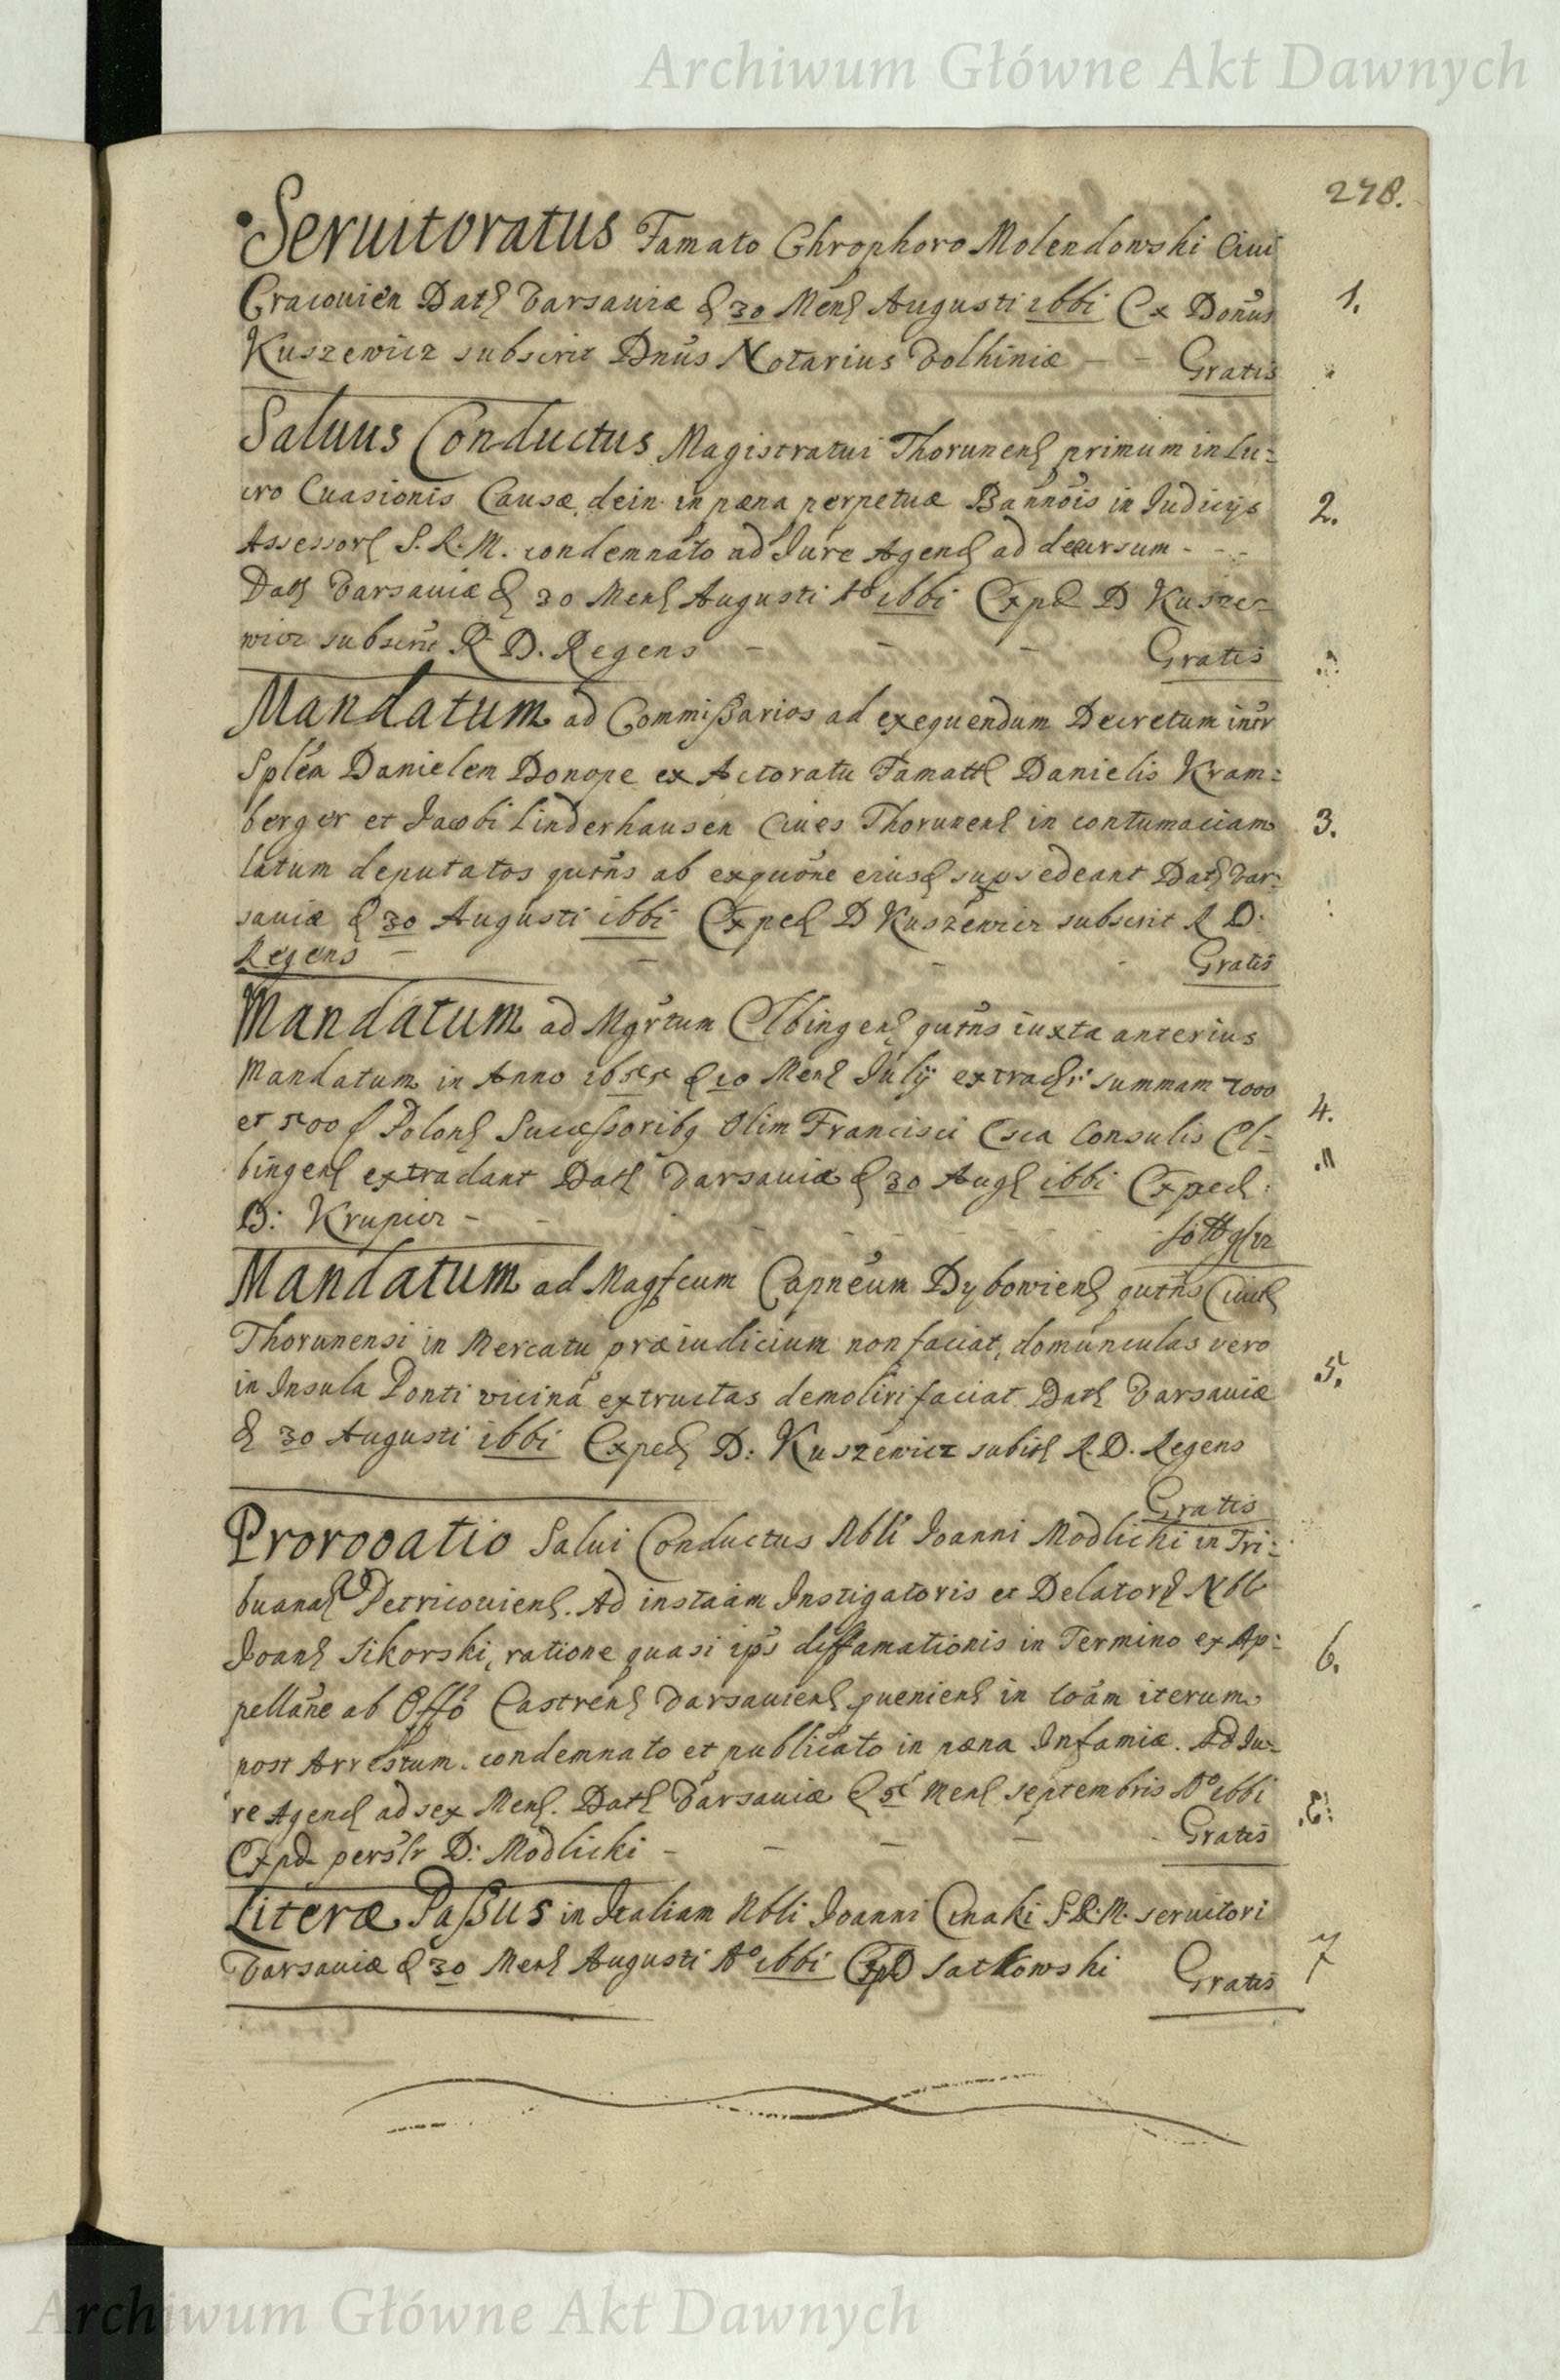 Archiwum Główne Akt Dawnych
278.
Seruitoratus Famato Chrophoro Molendowski Ciui
Cracouien Dat Varsauiæ d 30 Men Augusti 1661 Ex Donus 1.
Kuszewicz subscrit Dnus Notarius Volhiniæ – – Gratis
Saluus Conductus Magistratui Thorunen primum in Lu=
cro Euasionis Causæ, dein in pæna perpetuæ Bannois in Judicijs 2.
Assessor S. R. M. condemnato ad Jure Agend ad decursum - - -
Dat Varsauiæ d 30 Men Augusti Ao 1661 Exped D Kusze=
wicz subscrit R D. Regens – – – Gratis
Mandatum ad Commissarios ad exequendum Decretum intr
Splem Danielem Donope ex Actoratu Famat Danielis Kram=
berger et Jacobi Linderhausen Ciues Thorunen in contumaciam 3.
latum deputatos qutns ab exquone eiusd supsedeant Dat Var=
sauiæ d 30 Augusti 1661 Exped D Kuszewicz subscrit R D.
Regens – – – Gratis
Mandatum ad Mgrtum Elbingen qutns iuxta anterius
Mandatum in Anno 1655 d 10 Men Julij extradi summam 7000
et 500 f Polon Successoribq Olim Francisci Esca Consulis El= 4.
bingen extradant Dat Varsauiæ d 30 Aug 1661 Exped.
D: Krupicz - - - -
Mandatum ad Magfcum Capneum Dybowien qutns Ciuit
Thorunensi in Mercatu præiudicium non faciat, domunculas vero
in Insula Ponti vicina extructas demoliri faciat Dat Varsauiæ 5.
d 30 Augusti 1661 Exped D: Kuszewicz subst R. D. Regens
Gratis
Prorogatio Salui Conductus Nbli Joanni Modlicki in Tri=
bunal Petricouien. Ad instaam Instigatoris et Delator Nbl
Joan Sikorski, ratione quasi ips diffamationis in Termino ex Ap= 6.
pellane ab Offo Castren Varsauien pueniens in coam iterum
post Arrestum condemnato et publicato in pæna Infamiæ. Ad Ju=
re Agend ad sex Men. Dat Varsauiæ d 5 Men septembris Ao 1661
Expd perslr D: Modlicki - – – – Gratis
Literæ Passus in Italiam Nbli Joanni Cmaki S. R. M. seruitori
Varsauiæ d 30 Men Augusti Ao 1661 Exp D Satkowski Gratis 7
Archiwum Główne Akt Dawnych